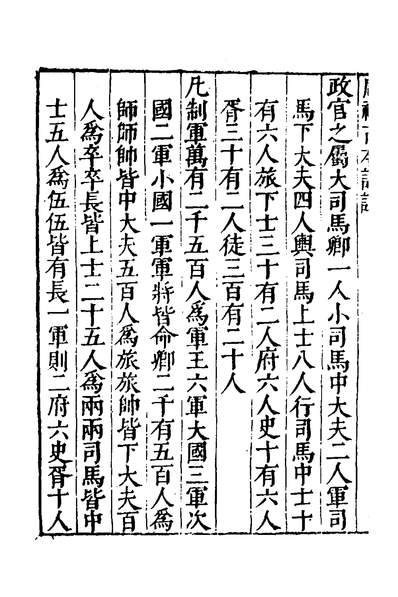 政官之屬大司馬卿一人小司馬中大夫二人軍司
馬下大夫四人輿司馬上士八人行司馬中士十
有六人旅下士三十有二人府六人史十有六人
胥三十有二人徒三百有二十人
凡制軍萬有二千五百人爲軍王六軍大國三軍次
國二軍小國一軍軍將皆命卿二千有五百人爲
師師帥皆中大夫五百人爲旅旅帥皆下大夫百
人爲卒卒長皆上士二十五人爲兩兩司馬皆中
士五人爲伍伍皆有長一軍則二府六史胥十人